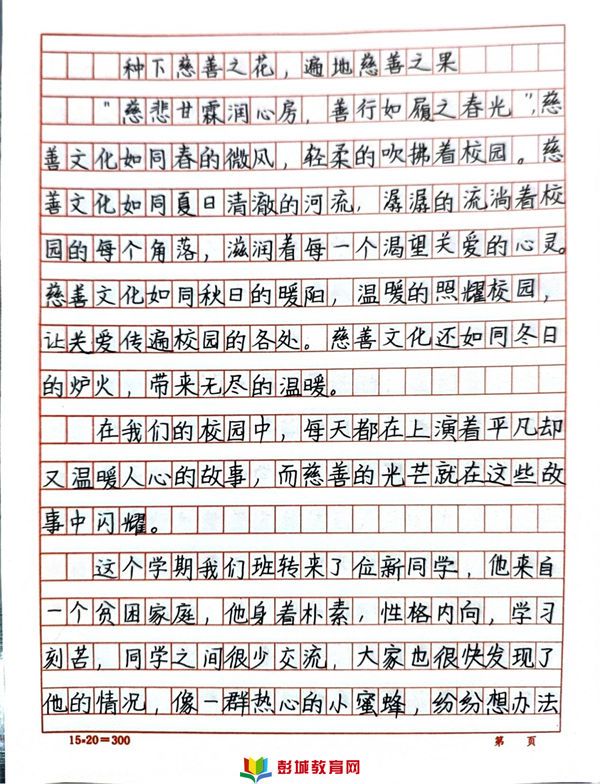 种下慈善之花，遍地慈善之果
“慈悲甘霖润心房，善行如履之春光”，慈
善文化如同春的微风，轻柔的吹拂着校园。慈
善文化如同夏日清澈的河流，潺潺的流淌着校
园的每个角落，滋润着每一个渴望关爱的心灵。
慈善文化如同秋日的暖阳，温暖的照耀校园，
让关爱传遍校园的各处。慈善文化还如同冬日
的炉火，带来无尽的温暖。
在我们的校园中，每天都在上演着平凡却
又温暖人心的故事，而慈善的光芒就在这些故
事中闪耀。
这个学期我们班转来了位新同学，他来自
一个贫困家庭，他身着朴素，性格内向，学习
刻苦，同学之间很少交流，大家也很快发现了
他的情况，像一群热心的小蜜蜂，纷纷想办法
15×20=300 第 页
彭城教育网